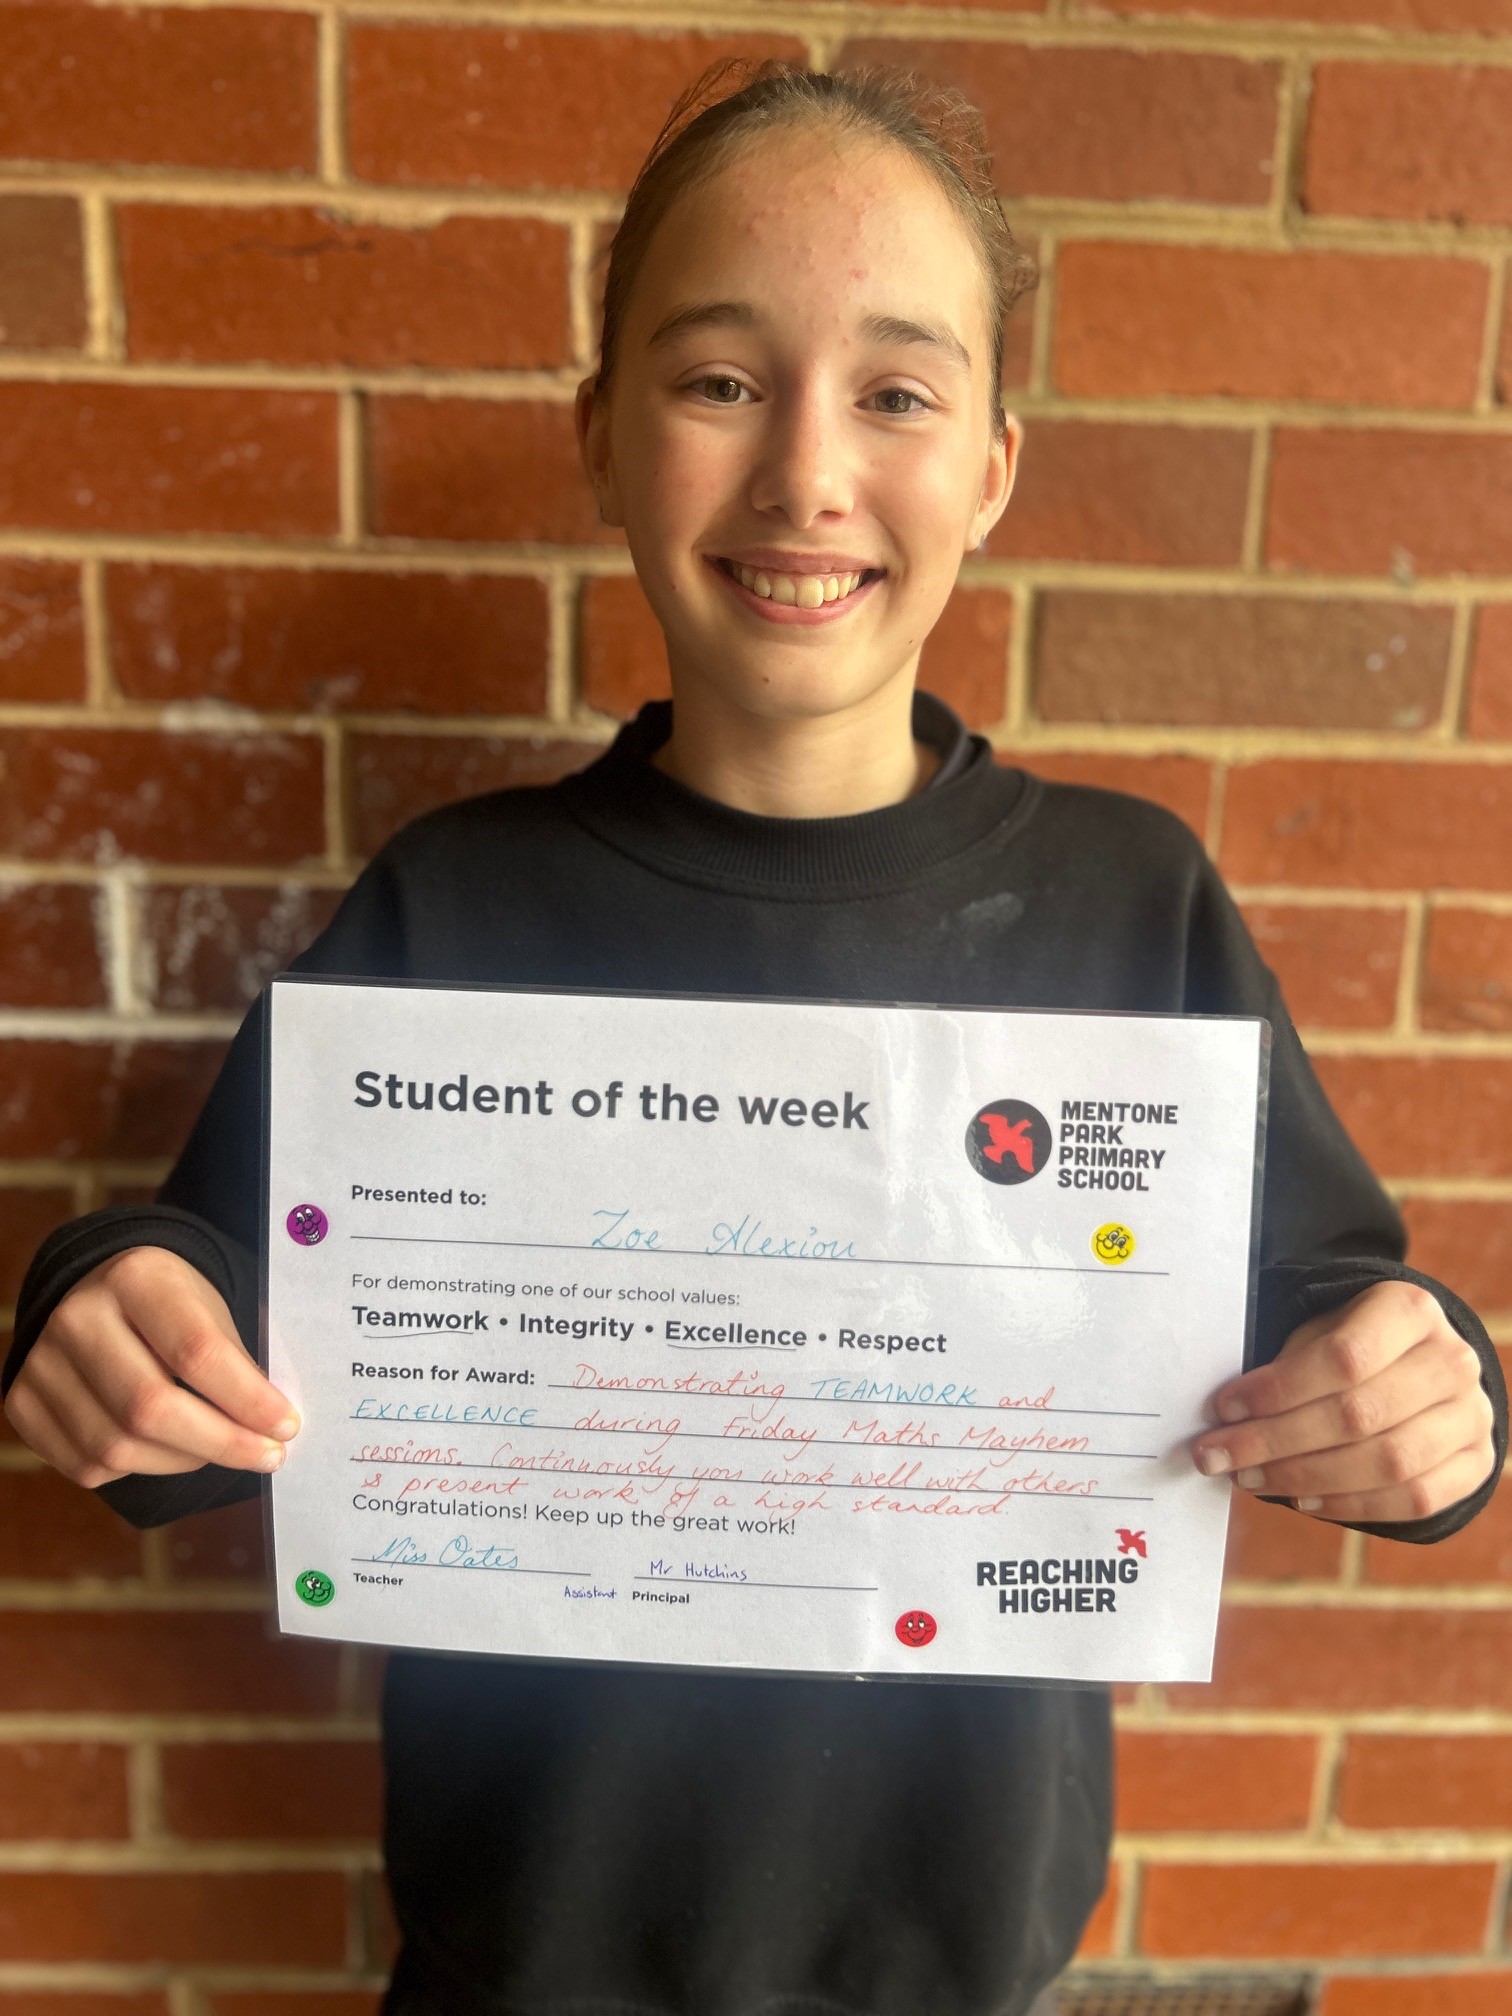 Student of the week
MENTONE
PARK
PRIMARY
SCHOOL
Presented to:
Zoe Alexiou
For demonstrating one of our school values:
Teamwork • Integrity • Excellence • Respect
Reason for Award: Demonstrating TEAMWORK and
EXCELLENCE during Friday Maths Mayhem
sessions. Continuously you work well with others
& present work of a high standard.
Congratulations! Keep up the great work!
Miss Oates
Mr Hutchins
Teacher
Assistant Principal
REACHING
HIGHER